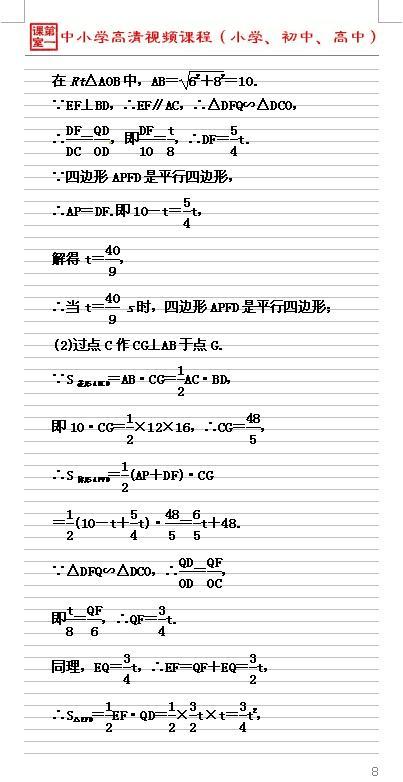 课第
堂一 中小学高清视频课程（小学、初中、高中）
在 Rt△AOB中，AB=√6²+8²=10.
∵EF⊥BD，∴EF∥AC，∴△DFQ∽△DCO，
∴DF/DC=QD/OD，即DF/10=t/8，∴DF=5/4t.
∵四边形 APFD是平行四边形，
∴AP=DF.即10－t=5/4t，
解得 t=40/9，
∴当 t=40/9 s时，四边形APFD是平行四边形；
(2)过点 C 作CG⊥AB于点 G.
∵S =AB·CG=1/2AC·BD，
即10·CG=1/2×12×16，∴CG=48/5，
∴S =1/2(AP＋DF)·CG
=1/2(10－t＋5/4t)·48/5=6/5t＋48.
∵△DFQ∽△DCO，∴QD/OD=QF/OC，
即t/8=QF/6，∴QF=3/4t.
同理，EQ=3/4t，∴EF=QF＋EQ=3/2t，
∴S△EFD=1/2EF·QD=1/2×3/2t×t=3/4t²，
8